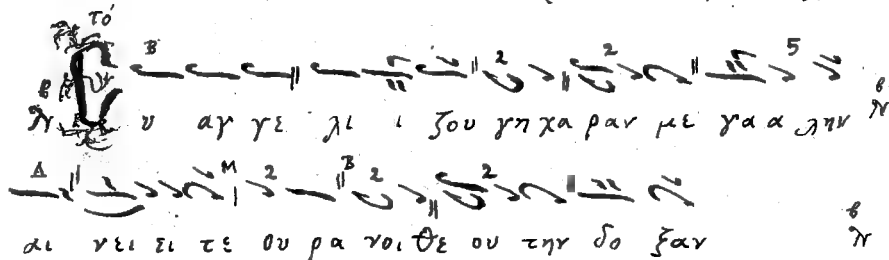 το
Ευ αγ γε λι ι ζου γη χα ραν με γα α λην
αι νει ει τε ου ρα νοι Θε ου την δο ξαν